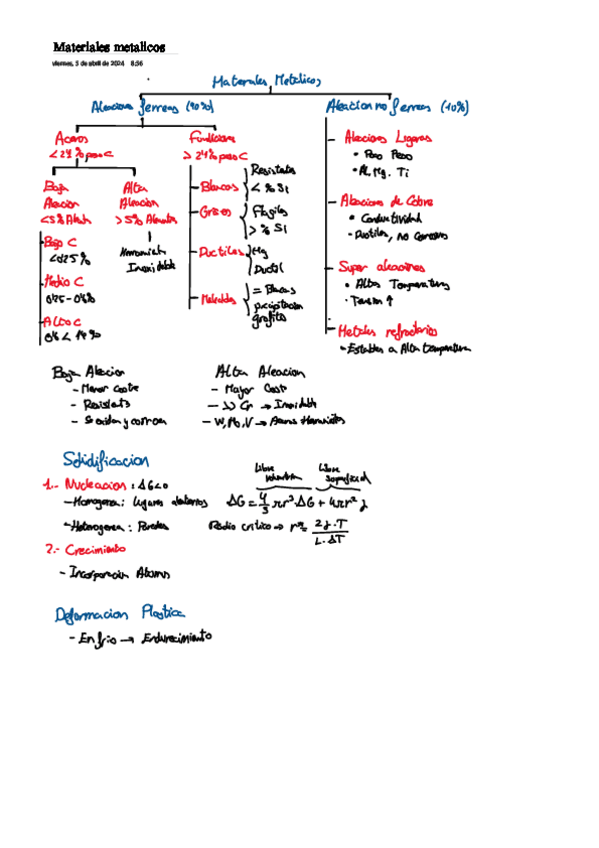 Materiales metalicos
viernes, 5 de abril de 2024 8:56
Materiales Metalicos
Aleaciones ferreas (90%)
Aleacion no ferreas (10%)
Aceros
Fundiciones
> 2'1% peso C
Baja Aleacion
<5% Aleantes
Bajo C
<0'25%
Medio C
0'25-0'6%
Alto C
Alta Aleacion
>5% Aleantes
Inoxidable
- Blancas
Resistentes
< % Si
- Grises
Fragiles
> % Si
- Ductiles
Mg
Ductil
- Maleables
= Blancas
precipitacion
grafito
- Aleaciones Ligeras
• Poco Peso
• Al, Mg, Ti
- Aleaciones de Cobre
• Conductividad
- Ductiles, no
- Super aleaciones
• Altas Temperaturas
• Tension ↑
- Metales refractarios
- Estables a Alta temperatura
Baja Aleacion
- Menor coste
-
- Se oxidan y corroen
Alta Aleacion
- Mayor Coste
- >> Cr → Inoxidable
- W, Mo, V → Aceros Herramientas
Solidificacion
1.- Nucleacion : ΔG<0
- Homogenea: lugares aleatorios
- Heterogenea: Paredes
Libre volumetrica
Libre superficial
ΔG = 4/3 πr³·ΔG + 4πr² γ
Radio critico → r* = 2γ·T / L·ΔT
2.- Crecimiento
- Incorporacion Atomos
Deformacion Plastica
- En frio → Endurecimiento